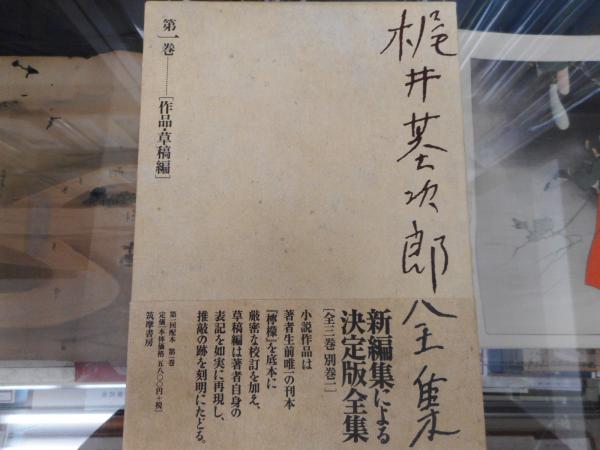 梶井基次郎全集
第一巻………[作品・草稿編]
新編集による
決定版全集
[全三巻 別巻一]
小説作品は
著者生前唯一の刊本
『檸檬』を底本に
厳密な校訂を加え、
草稿編は著者自身の
表記を如実に再現し、
推敲の跡を刻明にたどる。
第一回配本 第一巻
定価[本体価格 五八〇〇円+税]
筑摩書房